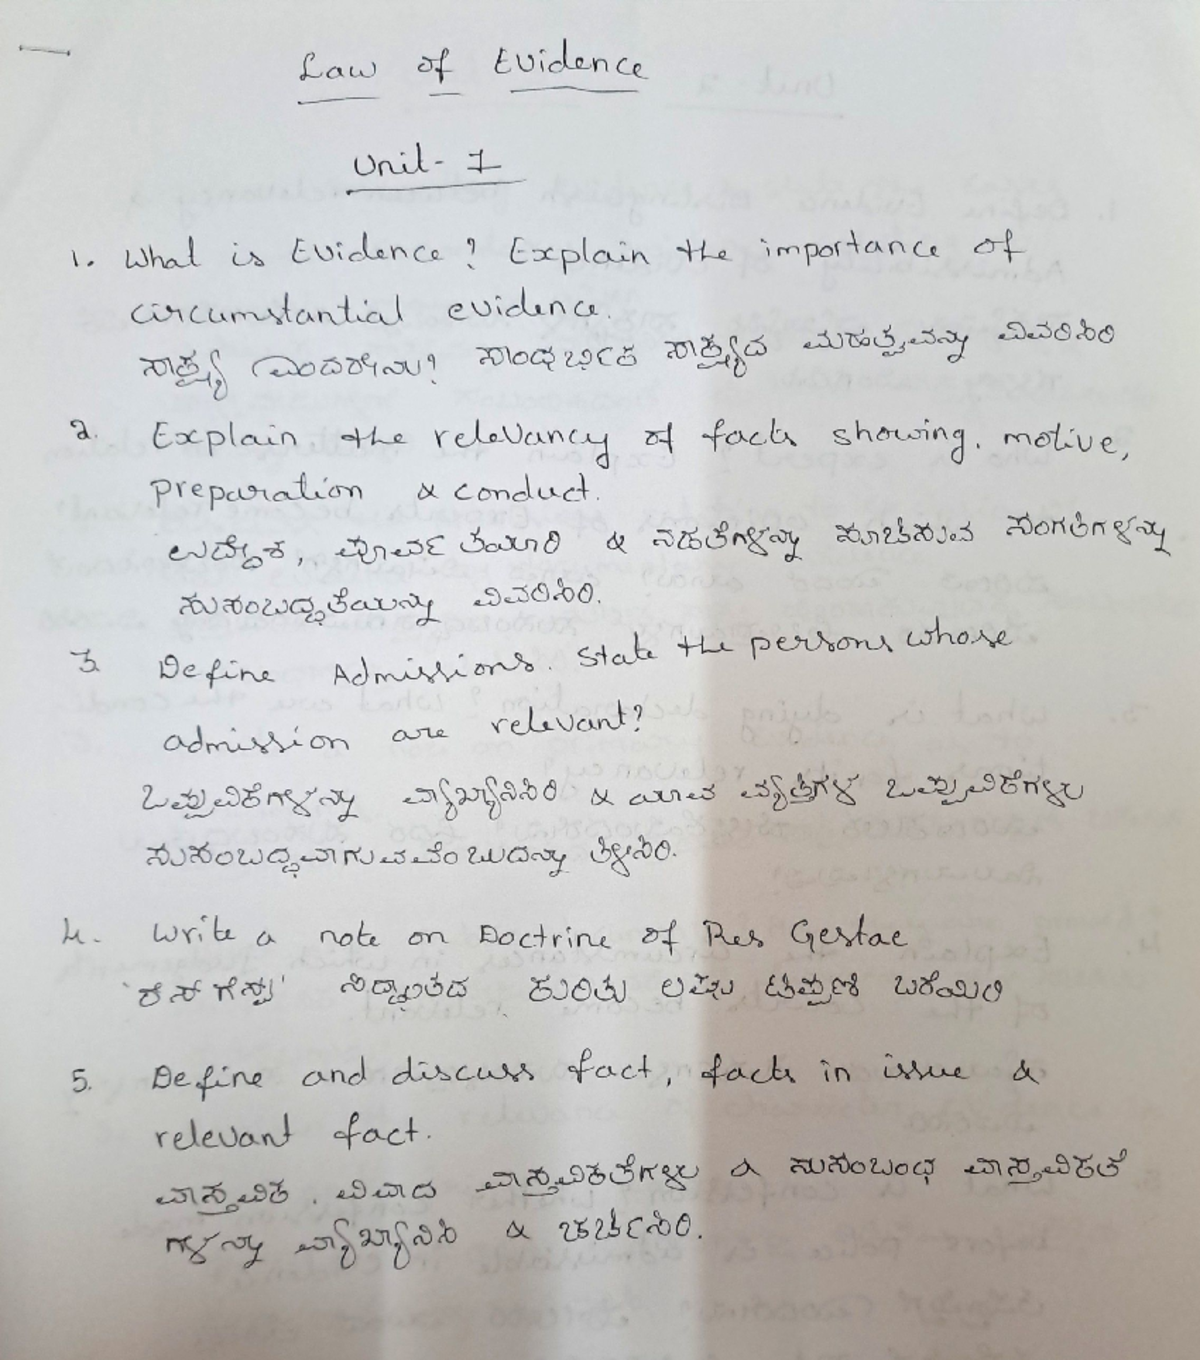 Law of Evidence
Unit- I
1. What is Evidence? Explain the importance of
circumstantial evidence.
ಸಾಕ್ಷ್ಯ ಎಂದರೇನು? ಸಾಂಧರ್ಭಿಕ ಸಾಕ್ಷ್ಯದ ಮಹತ್ವವನ್ನು ವಿವರಿಸಿರಿ
2. Explain the relevancy of facts showing. motive,
preparation & conduct.
ಉದ್ದೇಶ, ಪೂರ್ವ ತಯಾರಿ & ನಡತೆಗಳನ್ನು ಸೂಚಿಸುವ ಸಂಗತಿಗಳನ್ನು
ಸುಸಂಬದ್ಧತೆಯನ್ನು ವಿವರಿಸಿರಿ.
3. Define Admissions. State the persons whose
admission are relevant?
ಒಪ್ಪುವಿಕೆಗಳನ್ನು ವ್ಯಾಖ್ಯಾನಿಸಿರಿ & ಯಾವ ವ್ಯಕ್ತಿಗಳ ಒಪ್ಪುವಿಕೆಗಳು
ಸುಸಂಬದ್ಧವಾಗುವವೆಂಬುದನ್ನು ತಿಳಿಸಿರಿ.
4. Write a note on Doctrine of Res Gestae
'ರೆಸ್ ಗೆಸ್ಟ' ಸಿದ್ಧಾಂತದ ಕುರಿತು ಲಘು ಟಿಪ್ಪಣಿ ಬರೆಯಿರಿ
5. Define and discuss fact, facts in issue &
relevant fact.
ವಾಸ್ತವಿಕ. ವಿವಾದ ವಾಸ್ತವಿಕತೆಗಳು & ಸುಸಂಬಂಧ ವಾಸ್ತವಿಕತೆ
ಗಳನ್ನು ವ್ಯಾಖ್ಯಾನಿಸಿ & ಚರ್ಚಿಸಿರಿ.